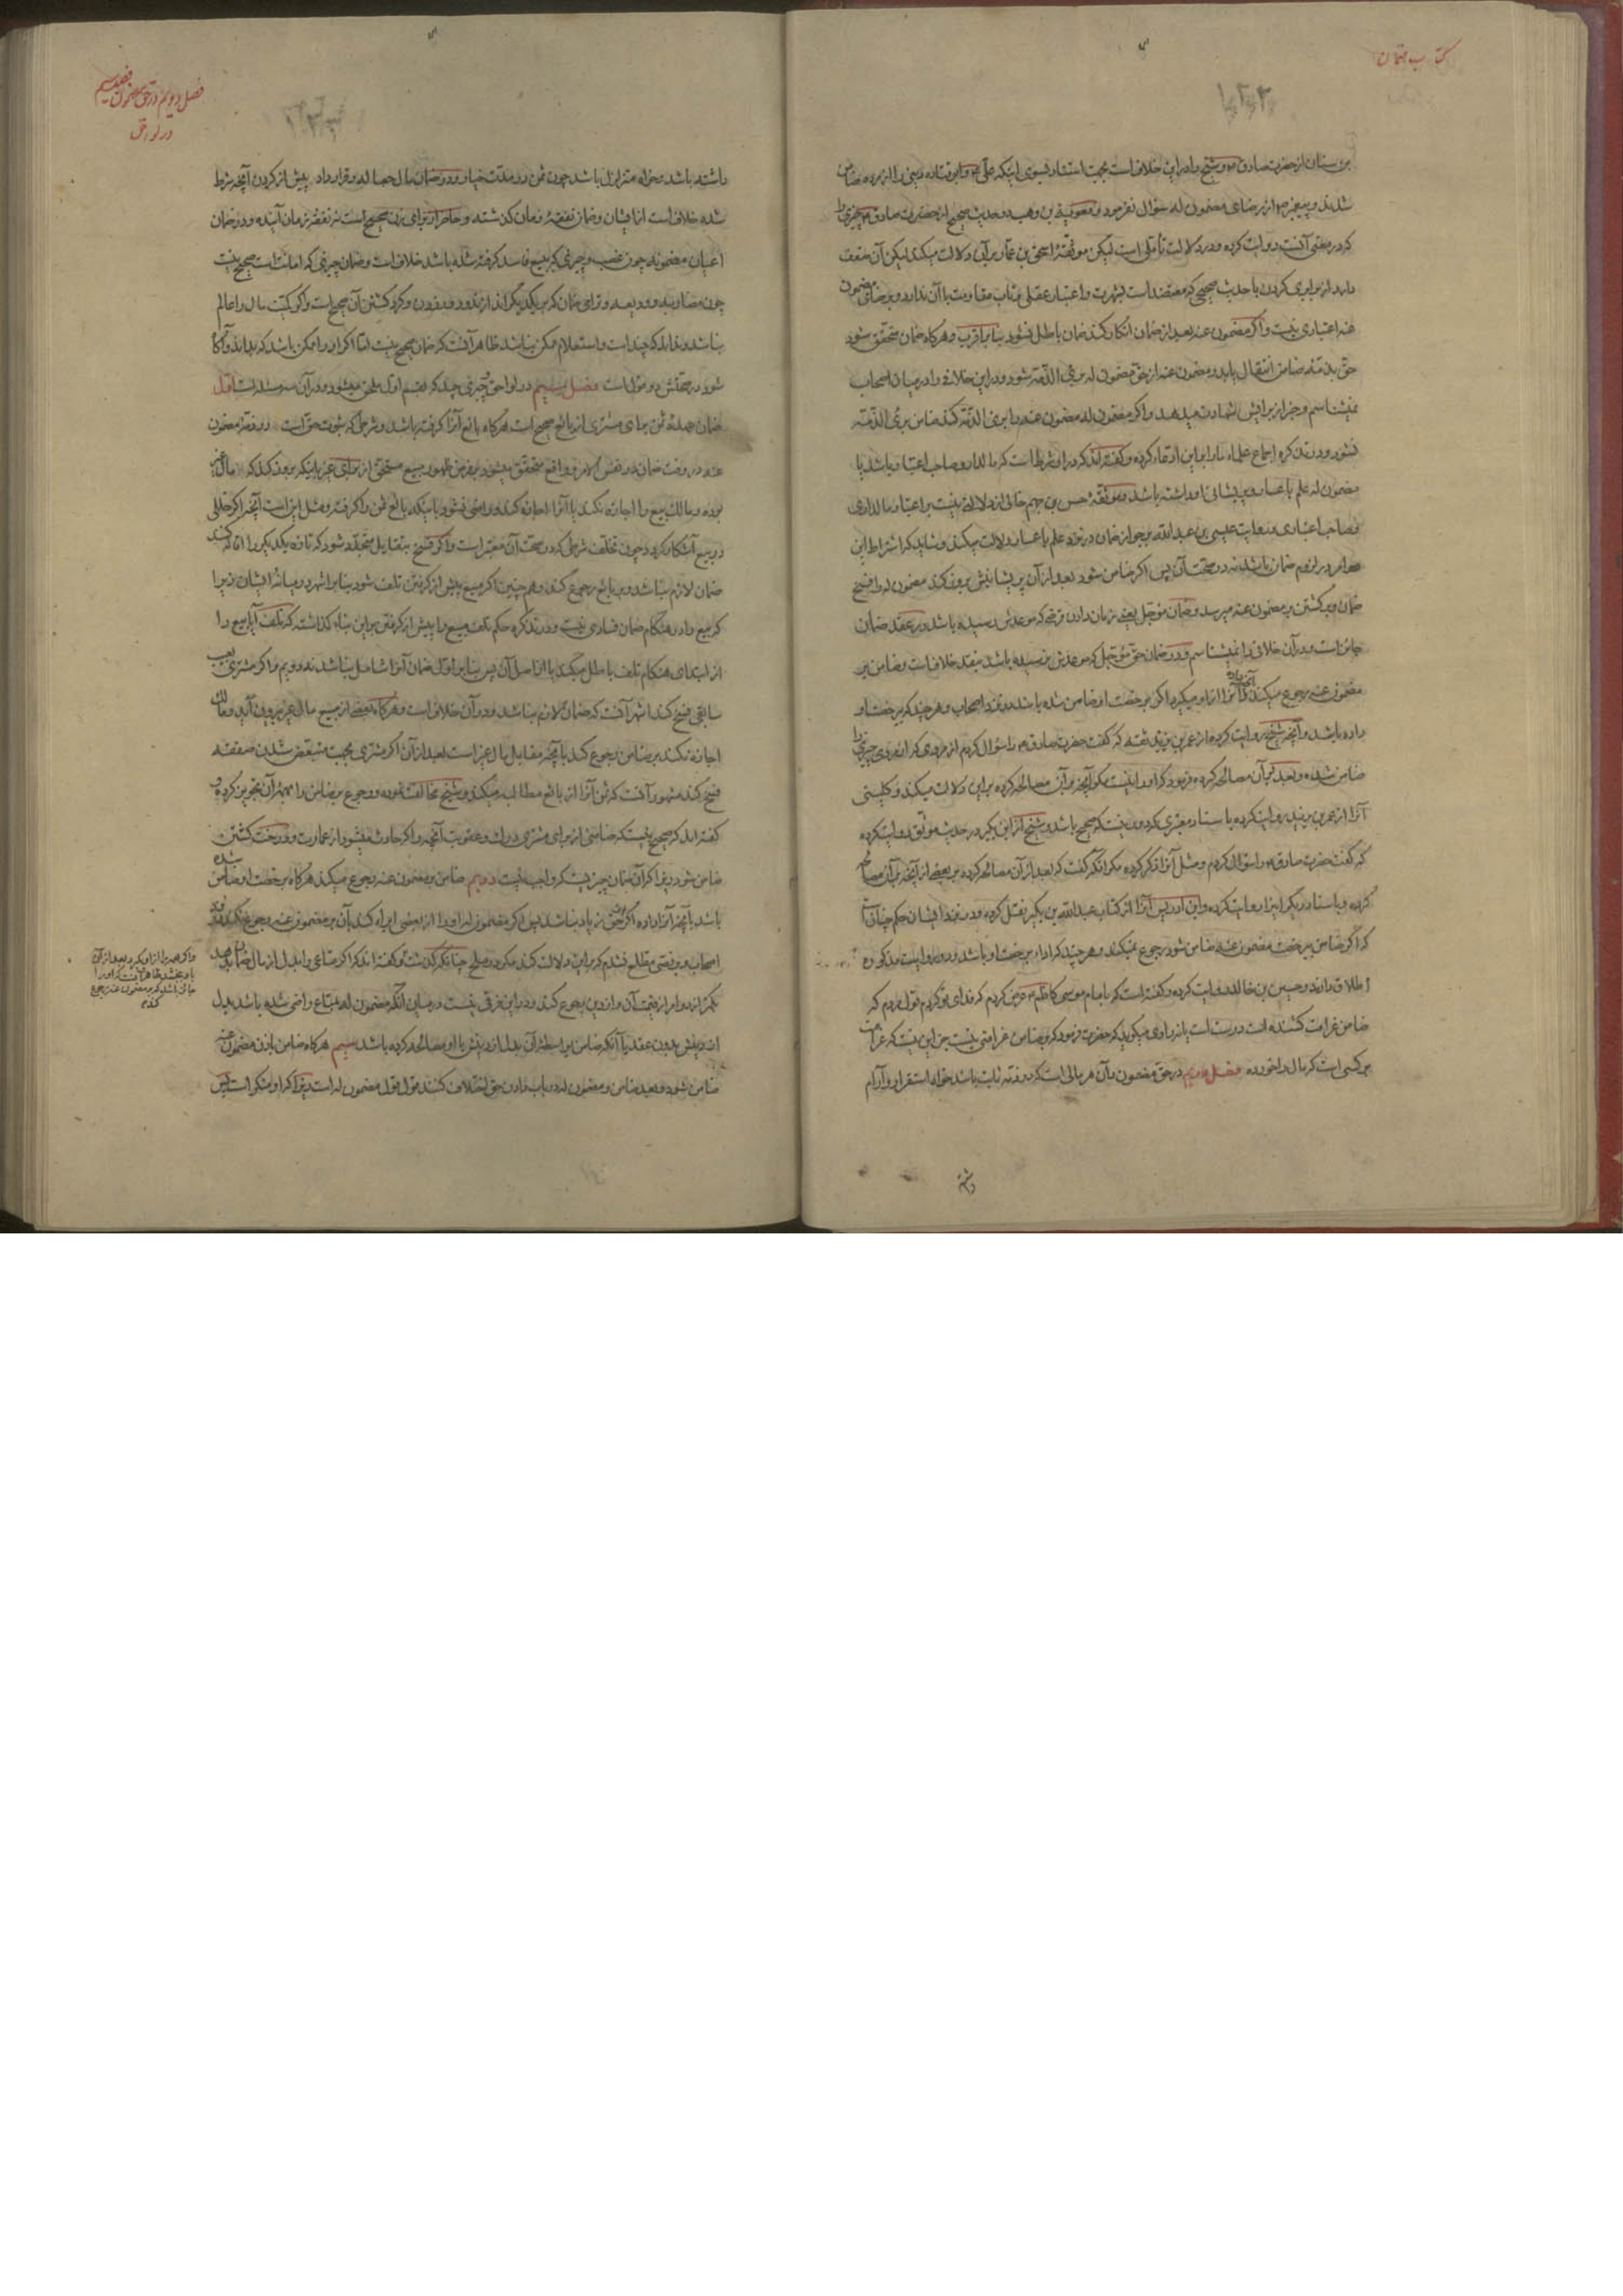 کتاب ضمان
۱۲۲
بن سنان از حضرت صادق و شیخ را در این خلاف است بجهت استناد بسوی اینکه علی و ابو قتاده دینی را از مرده ضامن
شدند و پیغمبر از رضای مضمون له سؤال نفرمود و معویة بن وهب در حدیث صحیح از حضرت صادق چیزی را
که در معنی آنست روایت کرده و در دلالت تأملی است لیکن موثقهٔ اسحق بن عمار بر آن دلالت میکند لیکن آن ضعف
دارد از برابری کردن با حدیث صحیحی که معتضد است بشهرت و اعتبار عقلی و تاب مقاومت با آن ندارد و برضای مضمون
عنه اعتباری نیست و اگر مضمون عنه بعد از ضمان انکار کند ضمان باطل نشود بنابر اقرب و هرگاه ضمان متحقق شود
حق بذمهٔ ضامن انتقال یابد و مضمون عنه از حق مضمون له بریء الذمه شود و در این خلافی را در میان اصحاب
نمیشناسم و خبر از برایش شهادت میدهد و اگر مضمون له مضمون عنه را بریء الذمه کند ضامن بریء الذمه
نشود و در تذکره اجماع علماء ما را بر این ادعاء کرده و گفته اند که در او شرط است که مالدار و صاحب اعتبار باشد یا
مضمون له علم باعسار و پریشانی او داشته باشد و موثقهٔ حسن بن جهم خالی از دلالتی نیست بر اعتبار مالداری
و صاحب اعتباری و روایت عیسی بن عبدالله بر جواز ضمان در نزد علم باعسار دلالت میکند و شاید که اشتراط این
امر در لزوم ضمان باشد نه در صحت آن پس اگر ضامن شود بعد از آن پریشانیش بروز کند مضمون له را فسخ
ضمان و برگشتن بر مضمون عنه میرسد و ضمان مؤجل یعنی زمان دادن قرضی که موعدش رسیده باشد در عقد ضمان
جائز است و در آن خلافی را نمیشناسم و در ضمان حق مؤجل که موعدش نرسیده باشد بنقد خلاف است و ضامن بر
مضمون عنه رجوع میکند و آنچه داده آنرا از او میگیرد اگر برخصت او ضامن شده باشد در نزد اصحاب و هر چند که برخصت او
داده باشد و آنچه شیخ روایت کرده از عمر بن یزید ثقه که گفت حضرت صادق را سؤال کردم از مردی که از مردی چیزی را
ضامن شده و بعد بر آن مصالحه کرده فرمود که او را نیست مگر آنچه بر آن مصالحه کرده بر این دلالت میکند و کلینی
آنرا از عمر بن یزید روایت کرده باسناد معتبری که دور نیست که صحیح باشد و شیخ از ابن بکیر در حدیث موثق روایت کرده
که گفت حضرت صادق را سؤال کردم و مثل آنرا ذکر کرده مگر آنکه گفت که بعد از آن مصالحه کرده بر بعضی از آنچه بر آن مصالحه
کرده و باسناد دیگر اینرا روایت کرده و ابن ادریس آنرا از کتاب عبدالله بن بکیر نقل کرده و در نزد ایشان حکم چنان است
که اگر ضامن بی رخصت مضمون عنه ضامن شود رجوع نمیکند و هر چند که اداء برخصت او باشد و در روایت مذکوره
اطلاق دارند و حسین بن خالد روایت کرده و گفته است که بامام موسی کاظم عرض کردم که فدای تو گردم قول مردم که
ضامن غرامت کشنده است درست است یا نه راوی میگوید که حضرت فرمود که بر ضامن غرامتی نیست جز این نیست که غرامت
بر کسی است که مال را خورده فصل دویم در حق مضمون و آن هر مالی است که در ذمه ثابت باشد خواه استقرار و آرام
داشته
فصل دویم در حق مضمون فصل سیم
در لواحق
۱۲۳
داشته باشد و خواه متزلزل باشد چون ثمن در مدت خیار و در ضمان مال جعاله و قرارداد پیش از کردن آنچه شرط
شده خلاف است از ایشان و ضمان نفقهٔ زمان گذشته و حاضر از برای زن صحیح است نه نفقهٔ زمان آینده و در ضمان
اعیان مضمونه چون غصب و چیزی که ببیع فاسد گرفته شده باشد خلاف است و ضمان چیزی که امانت است صحیح نیست
چون مضاربه و ودیعه و ترامی ضمان که بر یکدیگر اندازند و دور زدن و گرد گشتن آن صحیح است و اگر کمیت مال را عالم
نباشد و نداند که چند است و استعلام ممکن نباشد ظاهر آنست که ضمان صحیح نیست اما اگر او را ممکن باشد که بداند و آگاه
شود در صحتش دو قول است فصل سیم در لواحق چیزی چند که بقسم اول ملحق میشود و در آن سه مسئله است اول
ضمان عهدهٔ ثمن برای مشتری از بائع صحیح است هرگاه بائع آنرا گرفته باشد و شرطی که ثبوت حق است در ذمهٔ مضمون
عنه در وقت ضمان در نفس الامر و واقع متحقق میشود بفرض ظهور مبیع مستحق از برای غیر باینکه بروز کند که مال غیر
بوده و مالک بیع را اجازه نکند یا آنرا اجازه کند و راضی نشود باینکه بائع ثمن را گرفته و مثل این است آنچه اگر خللی
در بیع آشکار گردد چون تخلف شرطی که در صحت آن معتبر است و اگر فسخ بتقایل متجدد شود که تازه یکدیگر را اقاله کنند
ضمان لازم نباشد و بر بائع رجوع کند و همچنین اگر مبیع پیش از گرفتن تلف شود بنابر اشهر در میانهٔ ایشان زیرا
که بیع را در هنگام ضمان فسادی نیست و در تذکره حکم تلف مبیع را پیش از گرفتن بر این بناء گذاشته که تلف آیا بیع را
از ابتدای هنگام تلف باطل میکند یا از اصل آن پس بنابر اول ضمان آنرا شامل نباشد نه دویم و اگر مشتری بعیب
سابقی فسخ کند اشهر آنست که ضمان لازم نباشد و در آن خلاف است و هرگاه بعضی از مبیع مال غیر بیرون آید و مالک
اجازه نکند بر ضامن رجوع کند بآنچه مقابل مال غیر است بعد از آن اگر مشتری بجهت متبعض شدن صفقه
فسخ کند مشهور آنست که ثمن آنرا از بائع مطالبه میکند و شیخ مخالفت نموده و رجوع بر ضامن را بهمهٔ آن تجویز کرده و
گفته اند که صحیح نیست که ضامنی از برای مشتری درک و عقوبت آنچه را که حادث میشود از عمارت و درخت کشتن
ضامن شود زیرا که آن ضمان چیزیست که واجب نیست دویم ضامن بر مضمون عنه رجوع میکند هرگاه برخصت او ضامن شده
باشد بآنچه آنرا داده اگر از حق زیاد نباشد پس اگر مضمون له او را از بعضی ابراء کند بآن بر مضمون عنه رجوع نکند در نزد
اصحاب و بر نصی مطلع نشدم که بر این دلالت کند مگر در صلح چنانکه گذشت و گفته اند که اگر متاعی را بدل از مال ضمان بدهد
بکمتر از دو امر از قیمت آن و از دین رجوع کند و در این فرقی نیست در میان آنکه مضمون له بمتاع راضی شده باشد بدل
از دینش بدون عقد یا آنکه ضامن بواسطهٔ آن بدل از دینش با او مصالحه کرده باشد سیم هرگاه ضامن باذن مضمون عنه
ضامن شود و بعد ضامن و مضمون له در باب دادن حق اختلاف کنند قول قول مضمون له است زیرا که او منکر است پس
و اگر همه را از او بگیرد و بعد از آن
باو بخشد ظاهر آنست که او را
جائز باشد که بر مضمون عنه رجوع
کند